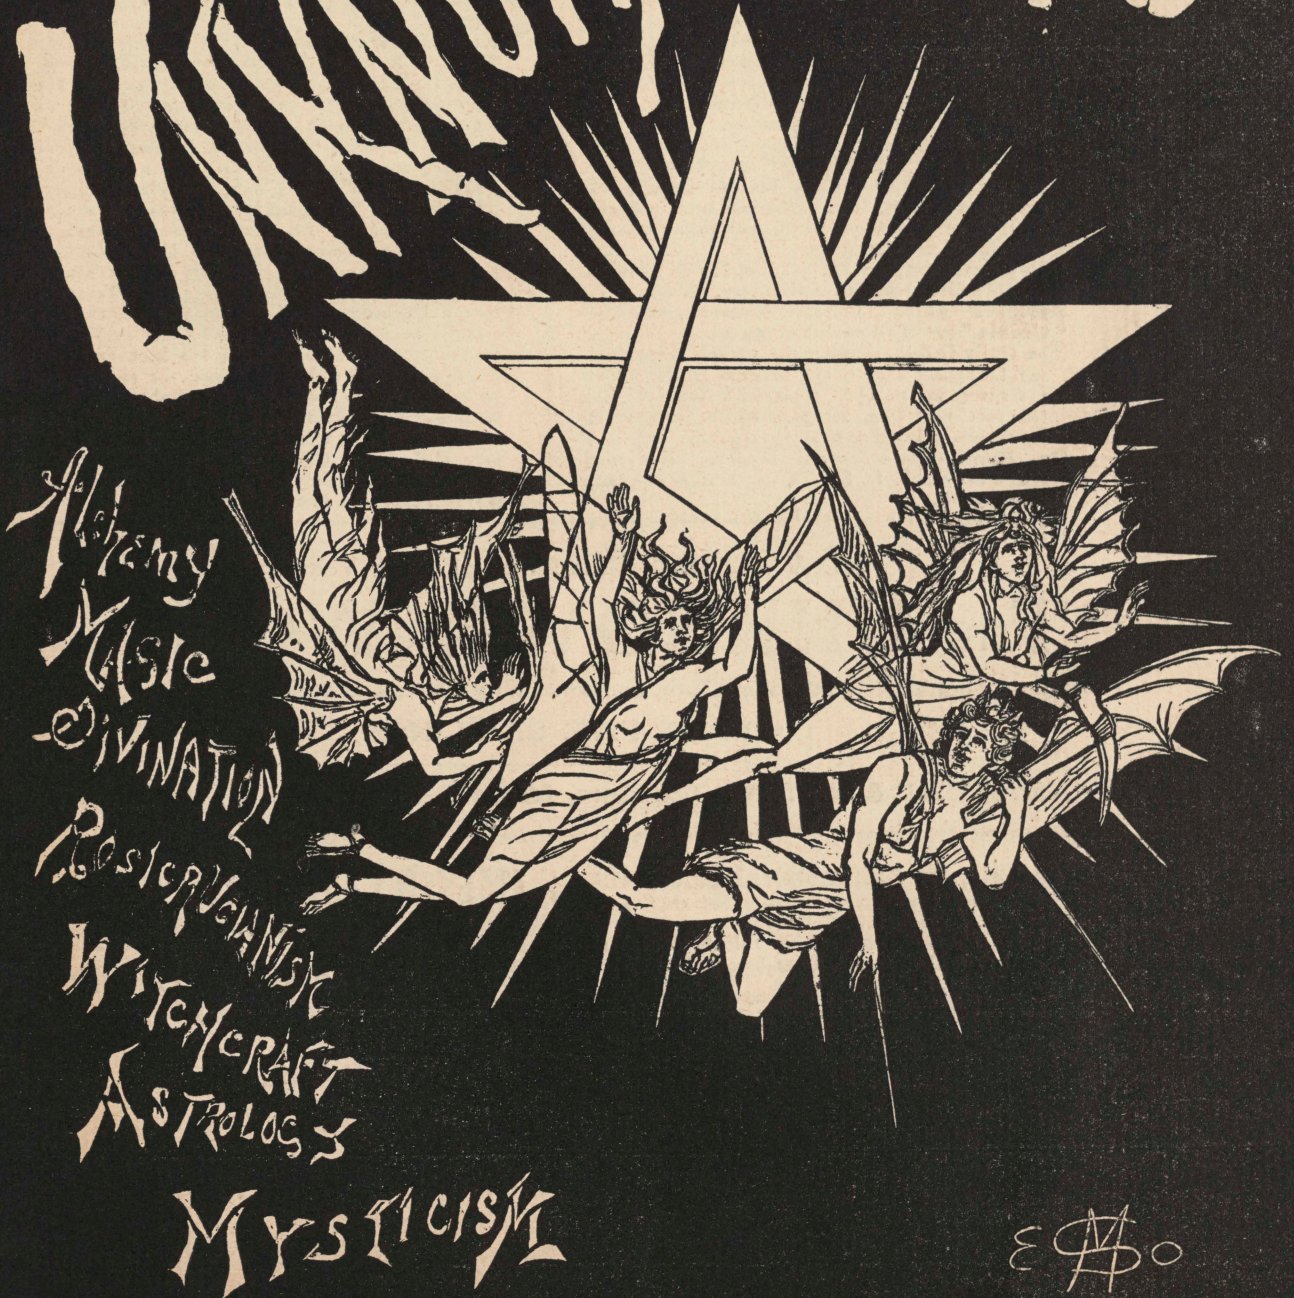 Alchemy
Magic
Divination
Rosicrucianism
Witchcraft
Astrology
Mysticism